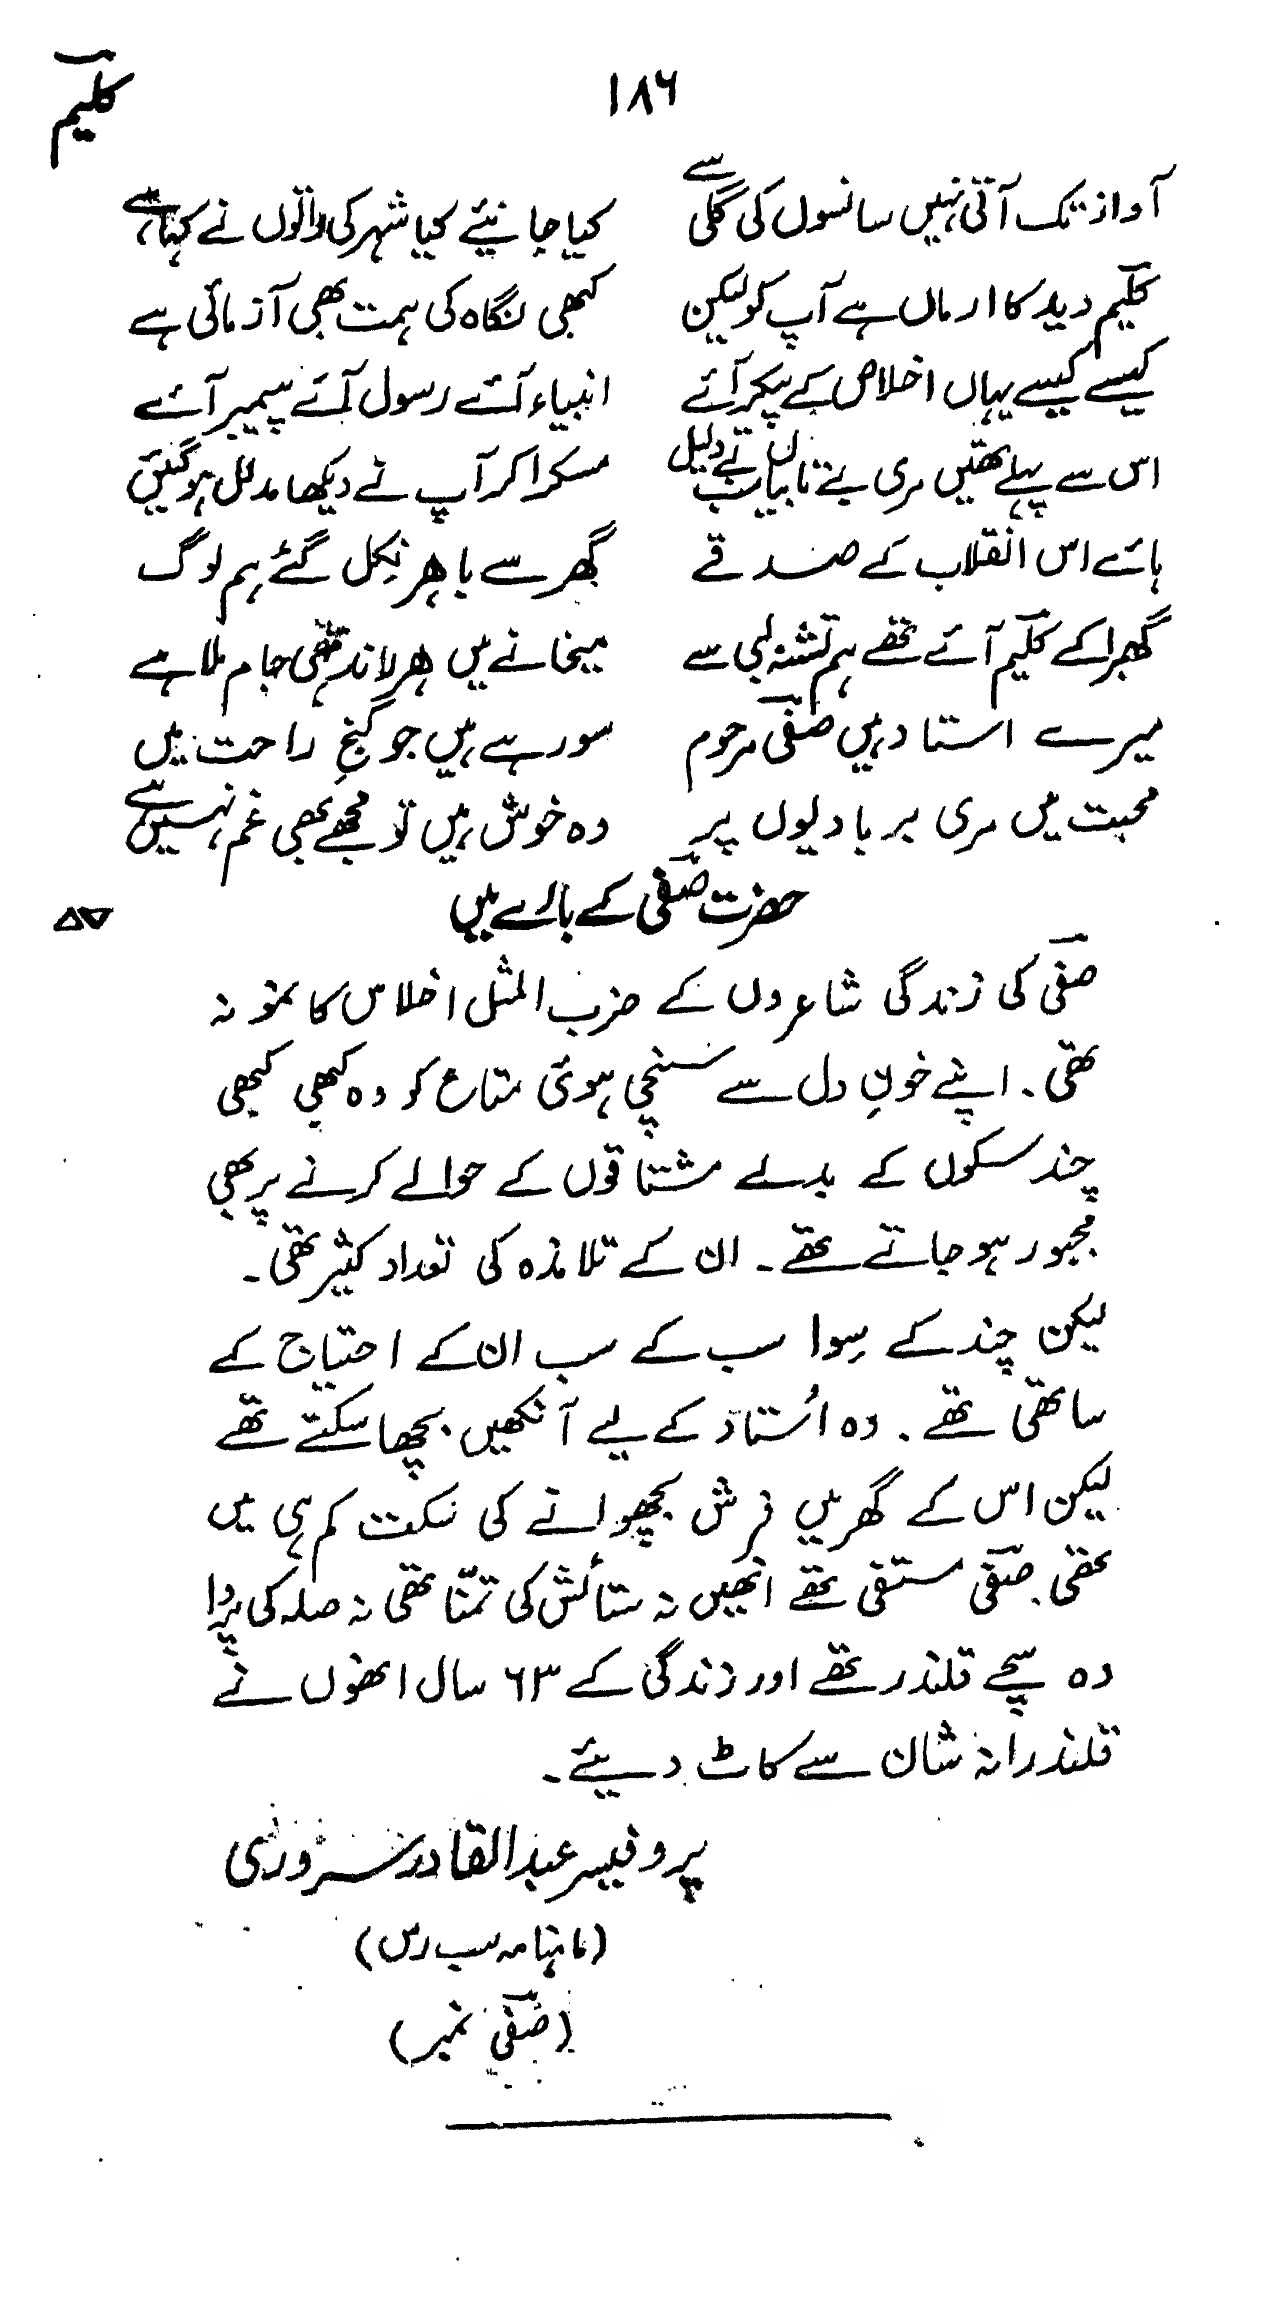 کلیم
۱۸۶
آواز تک آتی نہیں سانسوں کی گلی سے کیا جانیئے کیا شہر کی راتوں نے کہا ہے
کلیم دید کا ارماں ہے آپ کو لیکن کبھی نگاہ کی ہمت بھی آزمائی ہے
کیسے کیسے یہاں اخلاص کے پیکر آئے انبیاء آئے رسول آئے پیمبر آئے
اس سے پہلے تھیں مری بے تابیاں بے دلیل مسکرا کر آپ نے دیکھا مدلل ہوگئیں
ہائے اس انقلاب کے صدقے گھر سے باہر نِکل گئے ہم لوگ
گھبرا کے کلیم آئے تھے ہم تشنہ لبی سے میخانے میں ہر رند تہی جام ملا ہے
میرے استاد ہیں صفی مرحوم سو رہے ہیں جو گنجِ راحت میں
محبت میں مری بربادیوں پر وہ خوش ہیں تو مجھے بھی غم نہیں ہے
حضرت صفی کے بارے میں
صفی کی زندگی شاعروں کے ضرب المثل اخلاس کا نمونہ
تھی۔ اپنے خونِ دل سے سنچی ہوئی متاع کو وہ کبھی کبھی
چند سکوں کے بدلے مشتاقوں کے حوالے کرنے پر بھی
مجبور ہو جاتے تھے۔ ان کے تلامذہ کی تعداد کثیر تھی۔
لیکن چند کے سِوا سب کے سب ان کے احتیاج کے
ساتھی تھے۔ وہ اُستاد کے لیے آنکھیں بچھا سکتے تھے
لیکن اس کے گھر میں فرش بچھوانے کی سکت کم ہی میں
تھی۔ صفی مستغنی تھے انھیں نہ ستائش کی تمنّا تھی نہ صلہ کی پروا
وہ سچے قلندر تھے اور زندگی کے ۶۳ سال انھوں نے
قلندرانہ شان سے کاٹ دیئے۔
پروفیسر عبدالقادر سروری
(ماہنامہ سب رس)
(صفی نمبر)